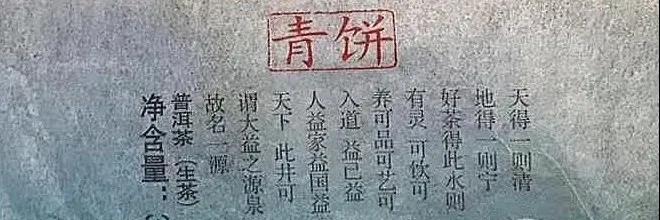 青饼
天得一则清
地得一则宁
好茶得此水则
有灵 可饮可
养可品可艺可
入道 益己益
人益家益国益
天下 此井可
谓大益之源泉
故名一源
普洱茶（生茶）
净含量：